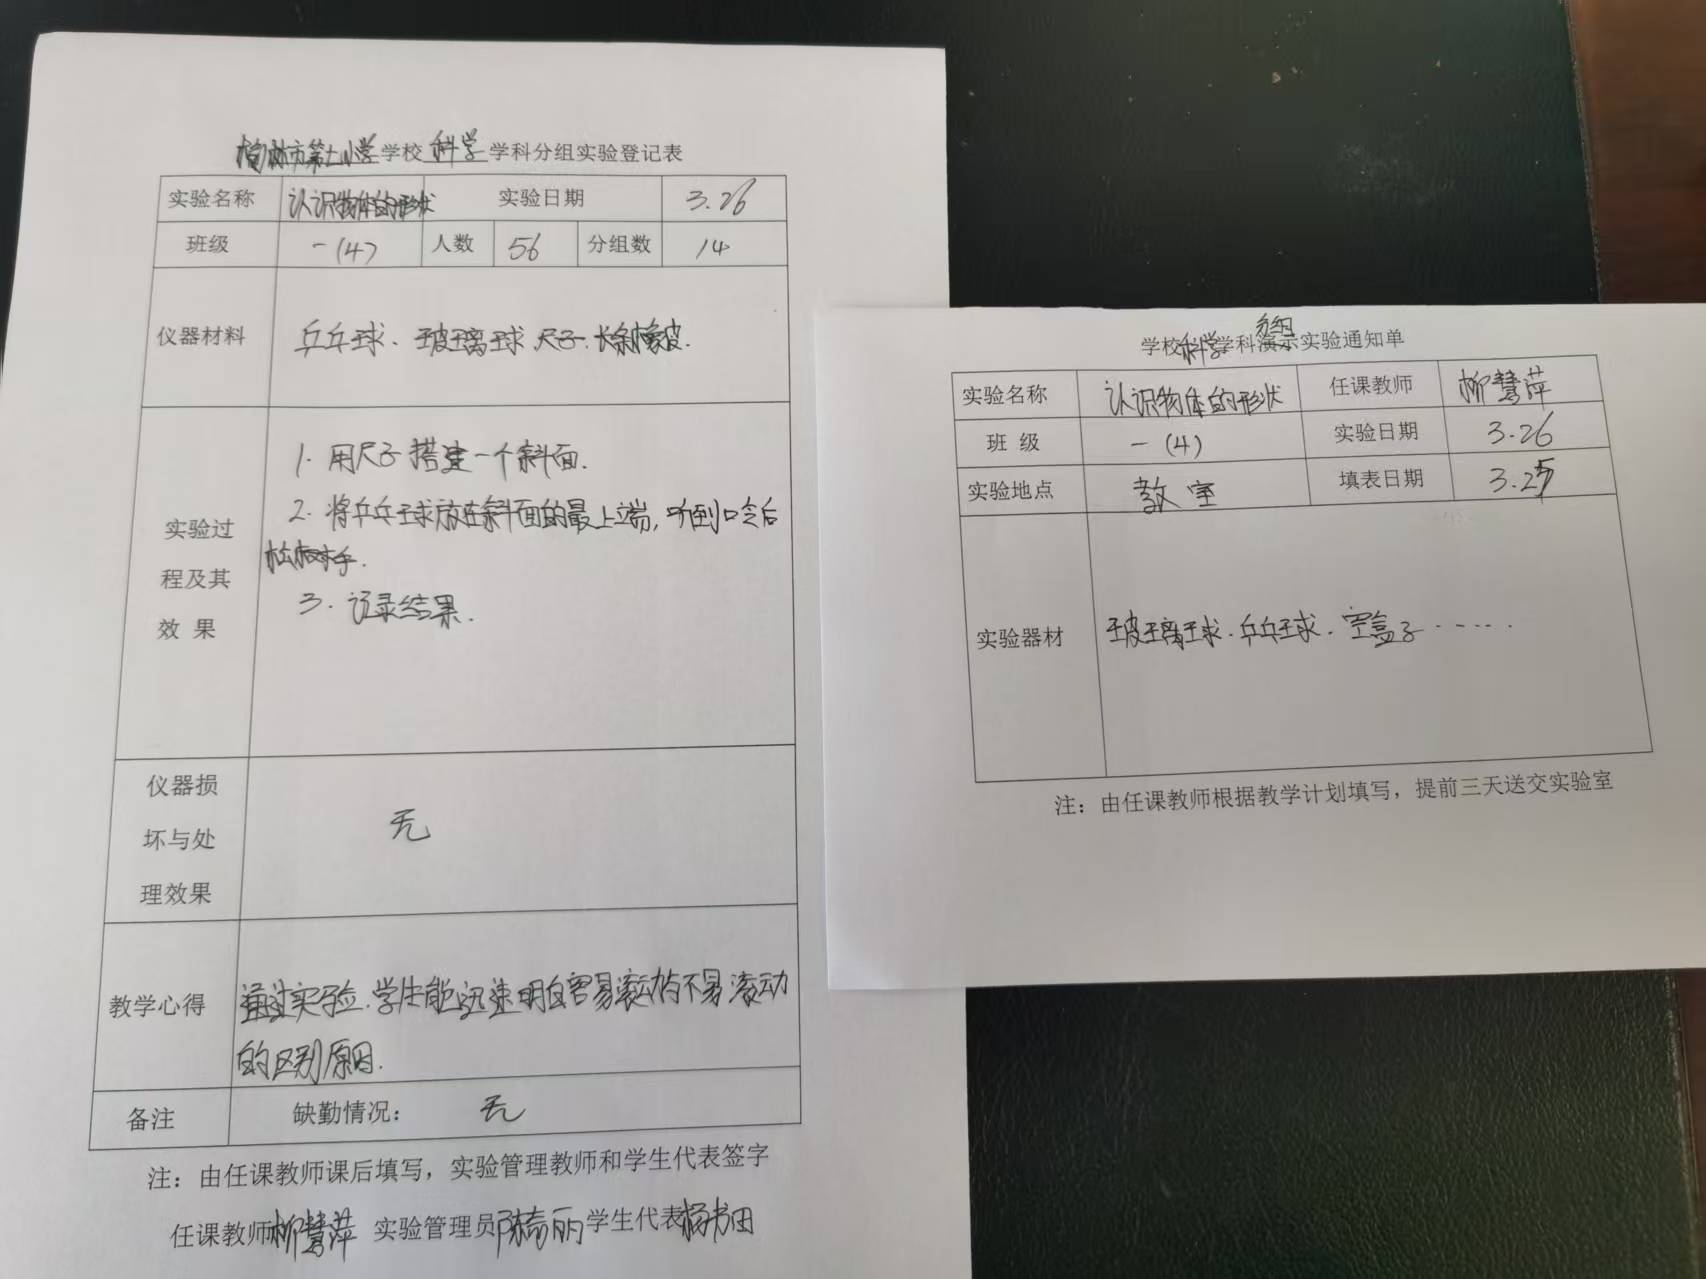 榆林市第十小学学校科学学科分组实验登记表
实验名称 认识物体的形状 实验日期 3.26
班级 一(4) 人数 56 分组数 14
仪器材料 乒乓球、玻璃球、尺子、长条橡皮.
实验过程及其效果
1. 用尺子搭建一个斜面.
2. 将乒乓球放在斜面的最上端，听到口令后
松手.
3. 记录结果.
仪器损坏与处理效果 无
教学心得
通过实验，学生能迅速明白容易滚动与不易滚动
的区别原因.
备注 缺勤情况： 无
注：由任课教师课后填写，实验管理教师和学生代表签字
任课教师柳慧萍 实验管理员陈奇丽 学生代表杨书田
学校科学学科分组实验通知单
实验名称 认识物体的形状 任课教师 柳慧萍
班 级 一(4) 实验日期 3.26
实验地点 教室 填表日期 3.25
实验器材 玻璃球、乒乓球、空盒子……
注：由任课教师根据教学计划填写，提前三天送交实验室